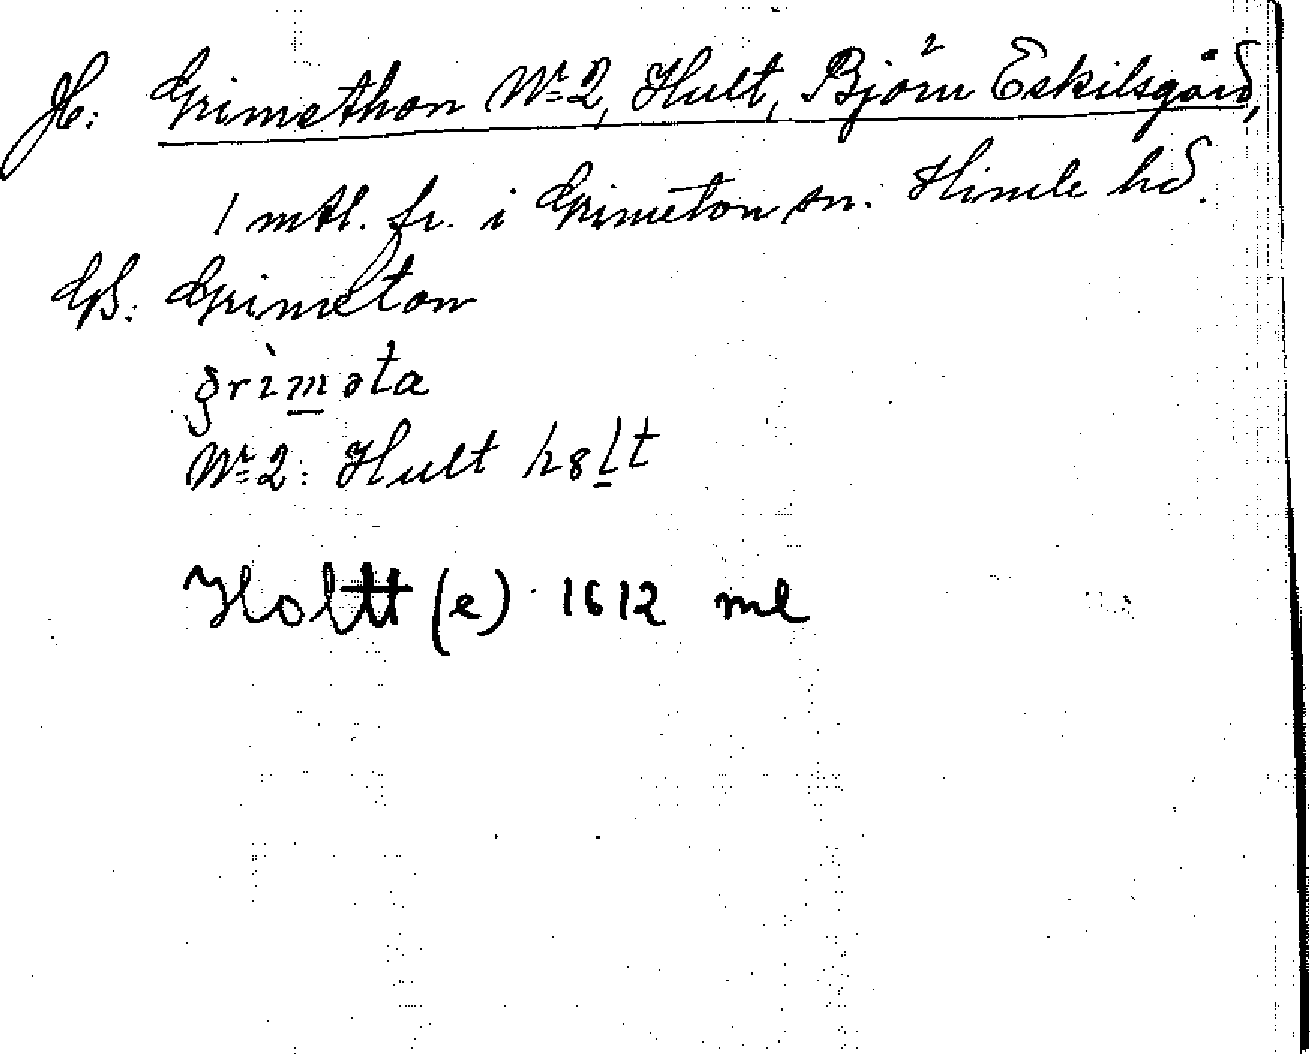 H: Grimethon Nr 2, Hult, Björn Eskilsgård,
1 mtl. fr. i Grimeton sn. Himle hd.
GS: Grimeton
grìməta
Nr 2: Hult hɞlt
Holtt(e) 1612 ml